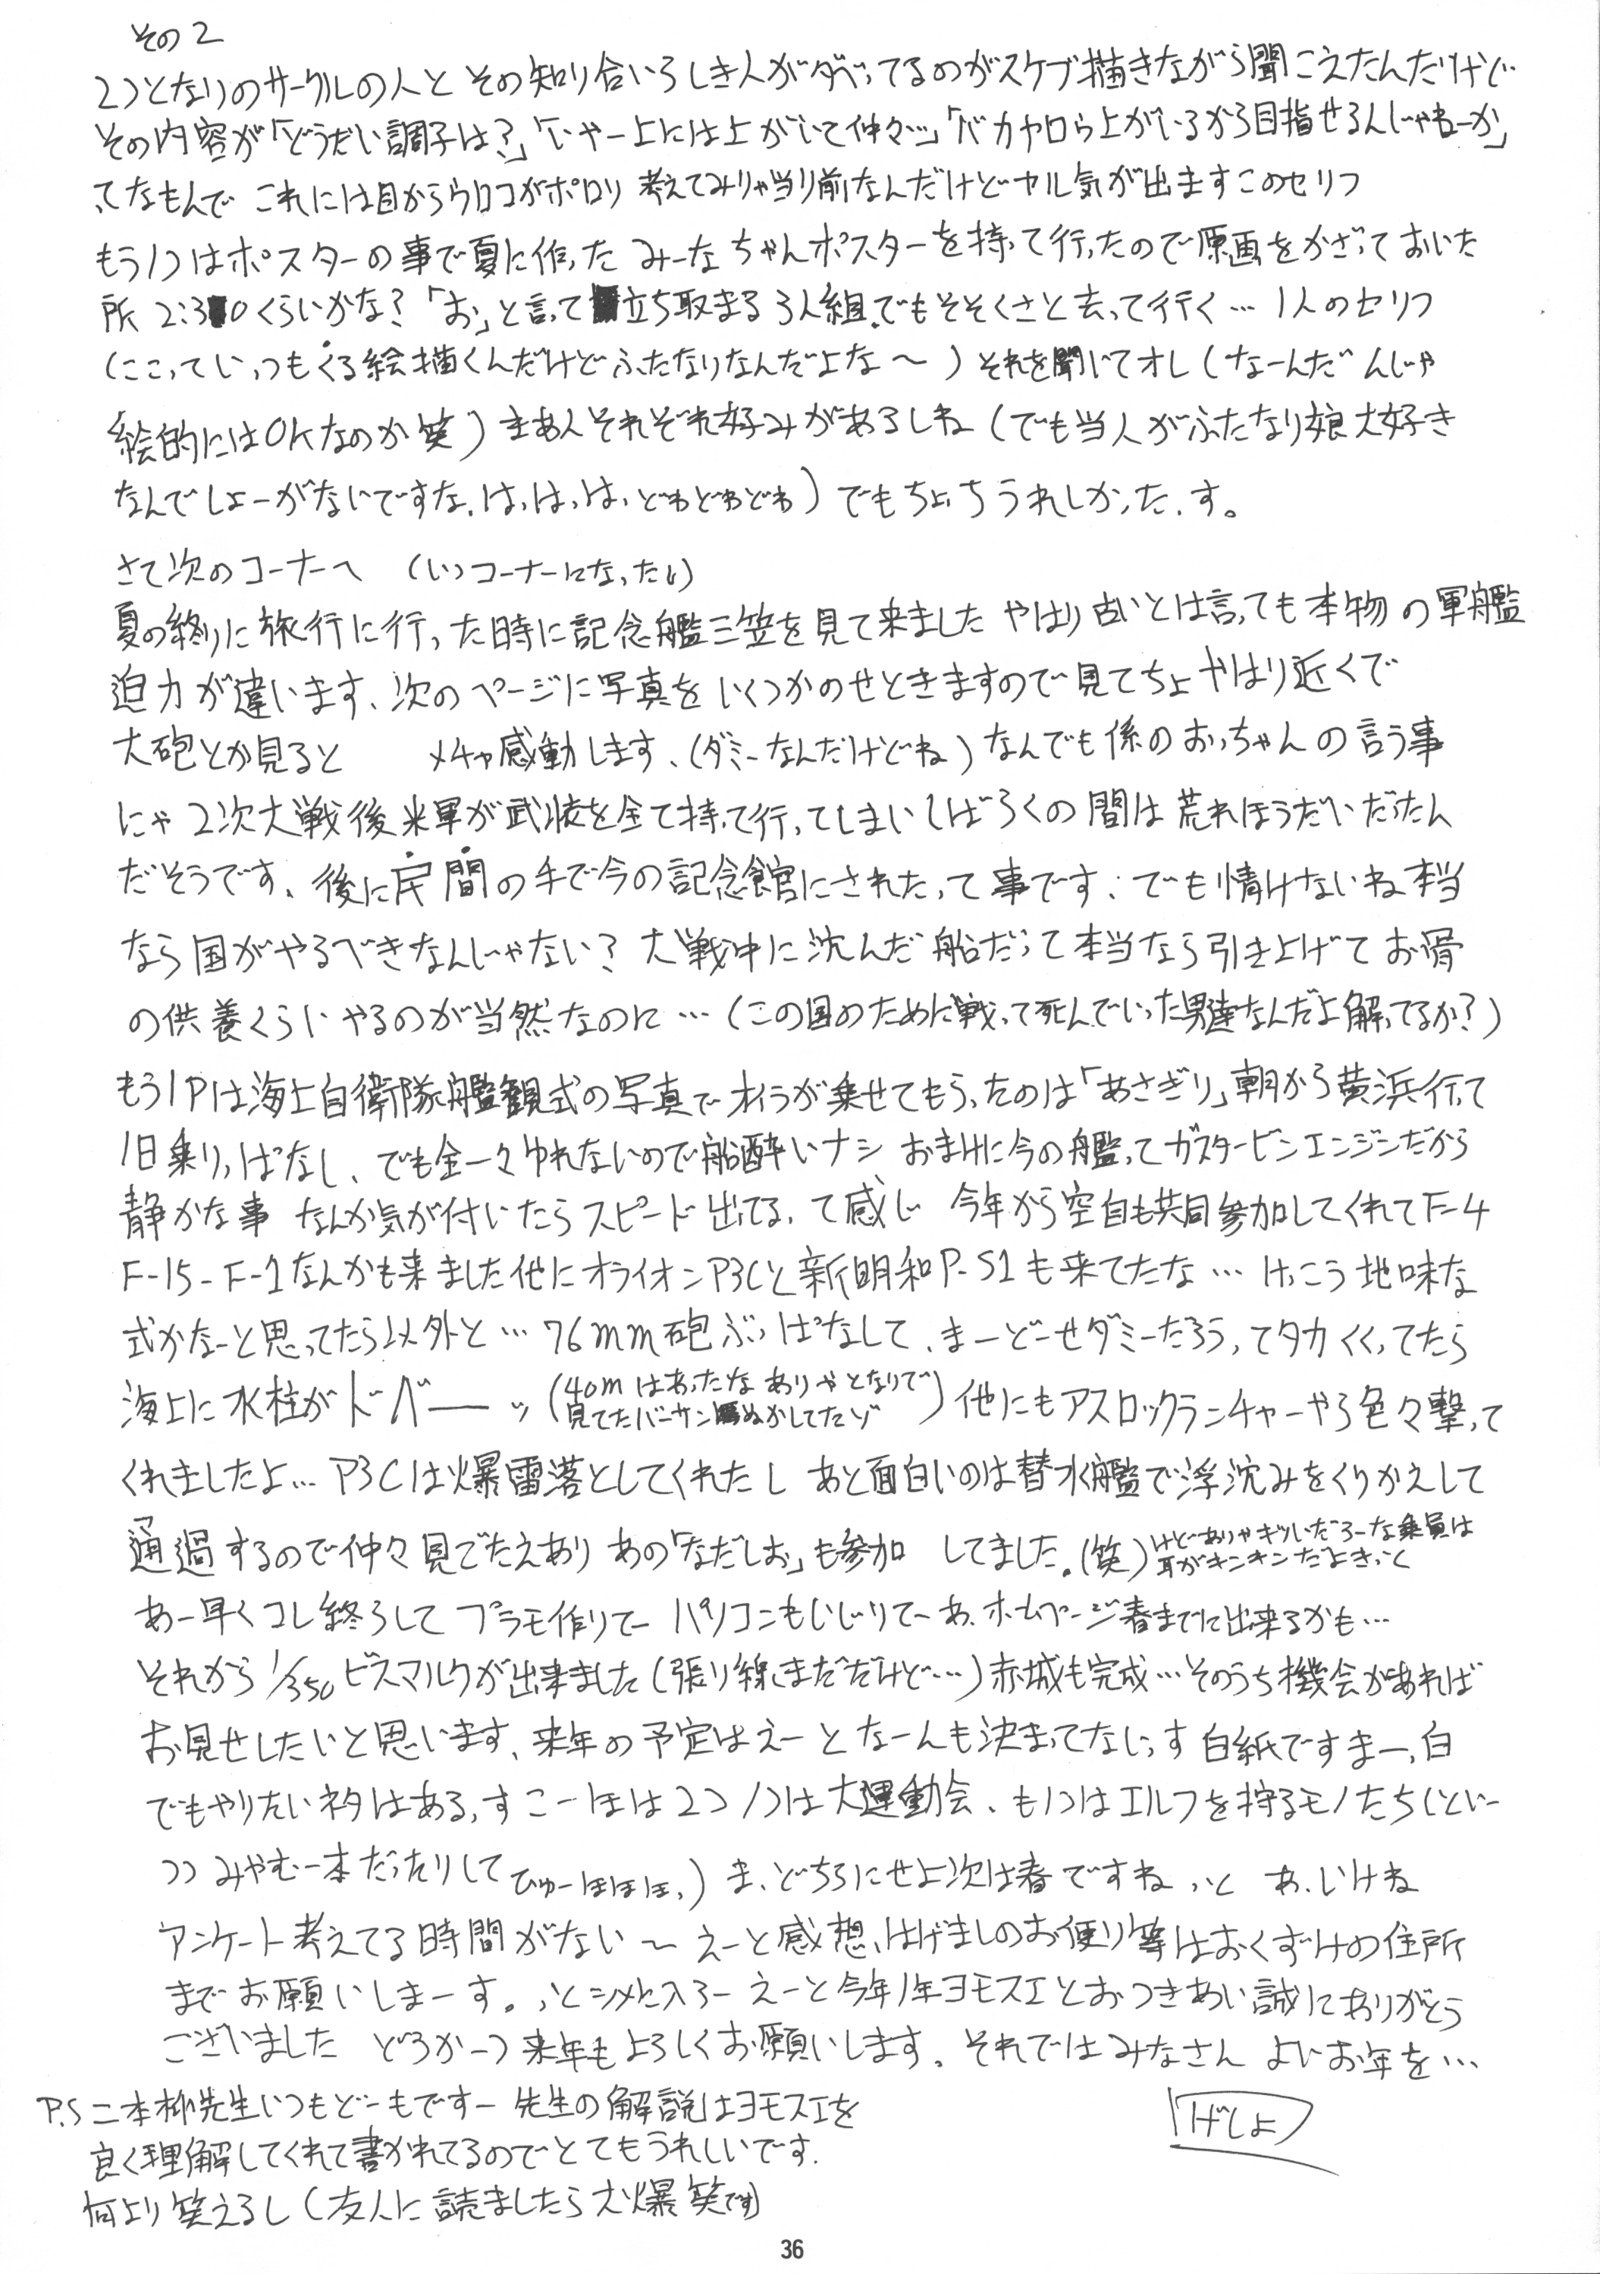 その2
2つとなりのサークルの人と その知り合いらしき人がダべってるのがスケブ描きながら聞こえたんだけど…
その内容が「どうだい調子は?」「いやー上には上がいて仲々…」「バカヤロウ上がいるから目指せるんじゃねーか」
ってなもんで これには目からウロコがポロリ 考えてみりゃ当り前なんだけどヤル気が出ますこのセリフ
もう1つはポスターの事で夏に作った みーなちゃんポスターを持って行ったので原画をかざっておいた
所 2:30くらいかな?「お」と言って立ち取まる3人組.でもそそくさと去って行く… 1人のセリフ
(ここっていつもくる絵描くんだけどふたなりなんだよな〜)それを聞いてオレ(なーんだ んじゃ
絵的にはOKなのか笑)まあんそれぞれ好みがあるしね(でも当人がふたなり娘大好き
なんでしょーがないですな.はっはっは、どわどわどわ)でもちょっちうれしかったっす。
さて次のコーナーへ (いつコーナーになったい)
夏の終りに旅行に行った時に記念艦三笠を見て来ました やはり古いとは言っても本物の軍艦
迫力が違います、次のページに写真をいくつかのせときますので見てちょ やはり近くで
大砲とか見ると メチャ感動します、(ダミーなんだけどね)なんでも係のおっちゃんの言う事
にゃ2次大戦後米軍が武装を全て持って行ってしまいしばらくの間は荒れほうだいだったん
だそうです、後に民間の手で今の記念館にされたって事です、でも情けないね本当
なら国がやるべきなんじゃない? 大戦中に沈んだ船だって本当なら引き上げてお骨
の供養くらいやるのが当然なのに…(この国のために戦って死んでいった男達なんだよ解ってるか?)
もう1Pは海上自衛隊艦観式の写真でオイラが乗せてもらったのは「あさぎり」朝から黄浜行って
1日乗りっぱなし、でも全々ゆれないので船酔いナシ おまけに今の艦ってガスタービンエンジンだから
静かな事 なんか気が付いたらスピード出てるって感じ 今年から空自も共同参加してくれてF-4
F-15-F-1なんかも来ました他にオライオンP3Cと新明和P-S1も来てたな… けっこう地味な
式かなーと思ってたら以外と…76mm砲ぶっぱなして、まーどーせダミーだろうってタカくくってたら
海上に水柱がドバーーッ(40mはあったなありゃとなりで
見てたバーサンぬかしてたゾ)他にもアスロックランチャーやら色々撃って
くれましたよ… P3Cは爆雷落としてくれたし あと面白いのは替水艦で浮沈みをくりかえして
通過するので仲々見ごたえあり あの「なだしお」も参加 してました.(笑)けどありゃキツいだろーな乗員は
耳がキンキンだよきっと
あー早くコレ終らして プラモ作りてー パソコンもいじりてーあ、ホームページ春までに出来るかも…
それから1/350ビスマルクが出来ました(張り線まだだけど…)赤城も完成…そのうち機会があれば
お見せしたいと思います、来年の予定はえーとなーんも決まってないっす 白紙ですまっ白
でもやりたいネタはある,すこーほは2つ 1つは大運動会、も1つはエルフを狩るモノたち(といー
つつみやむー本だったりして ひゅーほほほっ)ま、どちらにせよ次は春ですね っと あ、いけね
アンケート考えてる時間がない〜 えーと感想、はげましのお便り等はおくずけの住所
までお願いしまーす。っとシメに入ろー えーと今年1年ヨモスエとおつきあい誠にありがとう
ございました どうか一つ来年もよろしくお願いします、それではみなさん よいお年を…
げしょ
P.S 二本柳先生いつもどーもですー 先生の解説はヨモスエを
良く理解してくれて書かれてるのでとてもうれしいです.
何より笑えるし(友人に読ましたら大爆笑です)
36